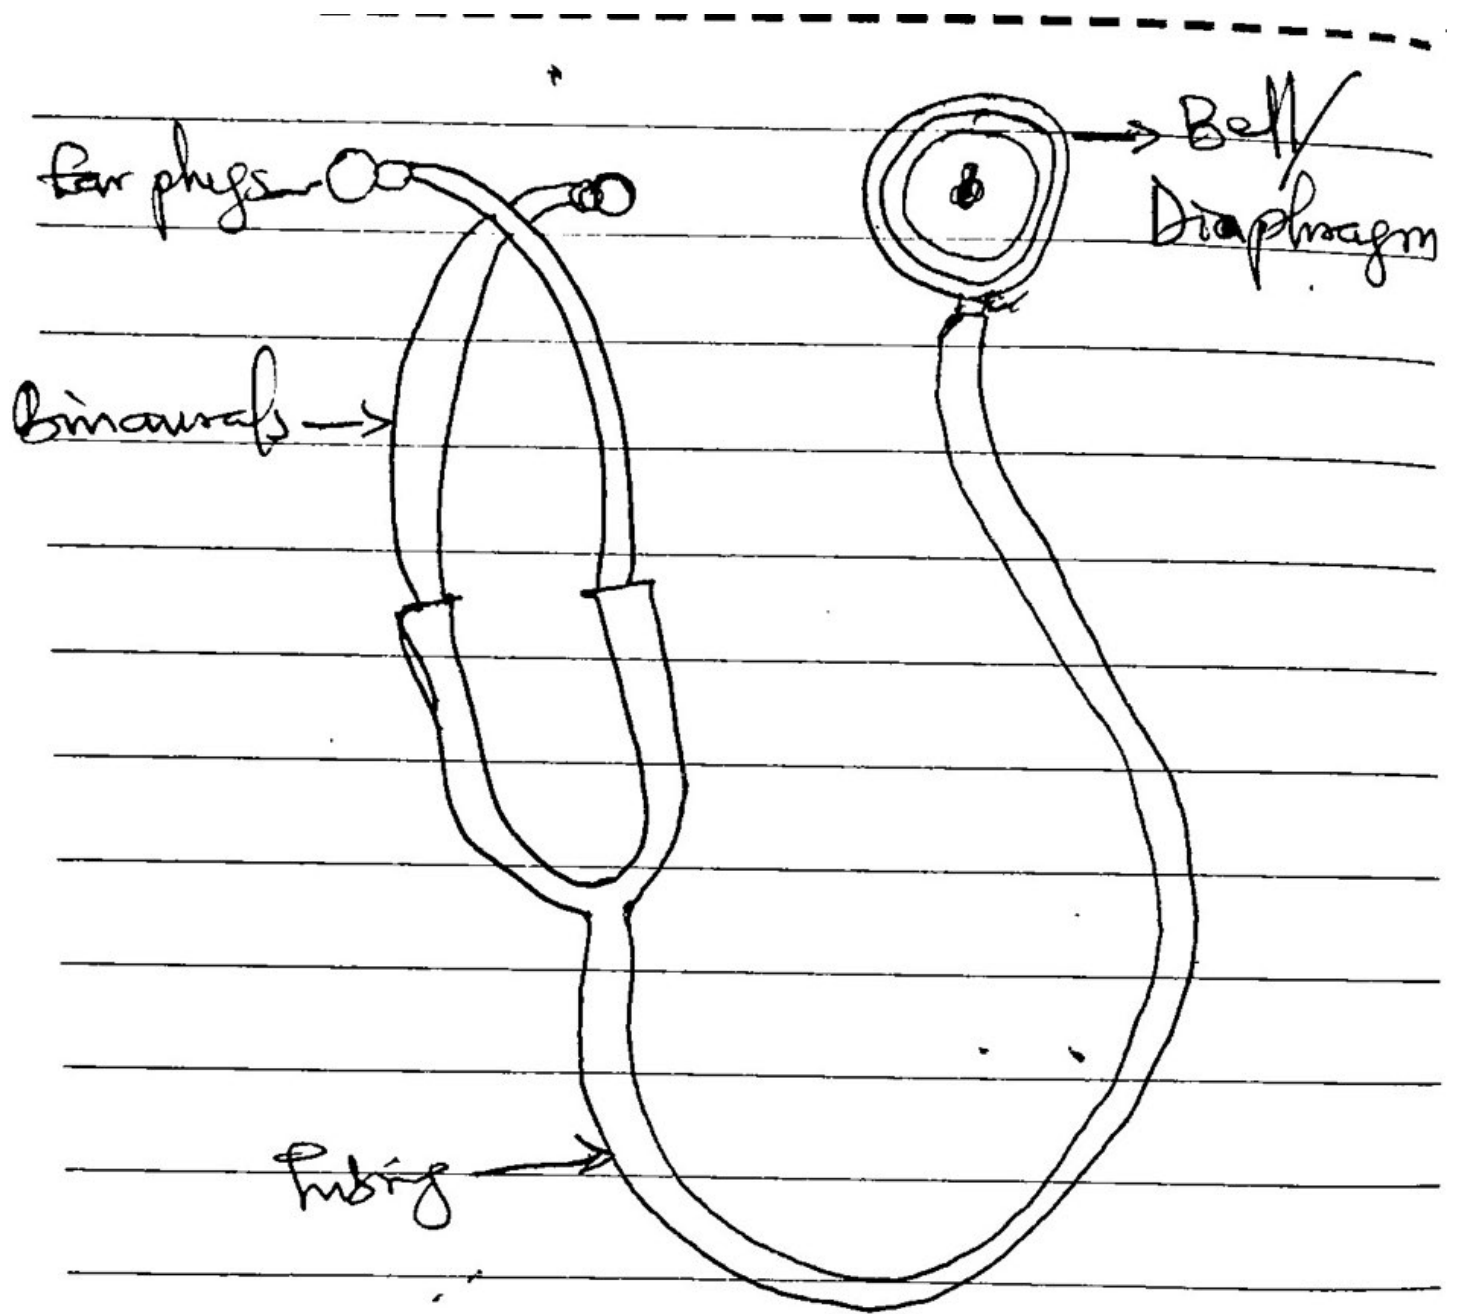 Ear plugs
Bell/
Diaphragm
Binaurals
Tubing